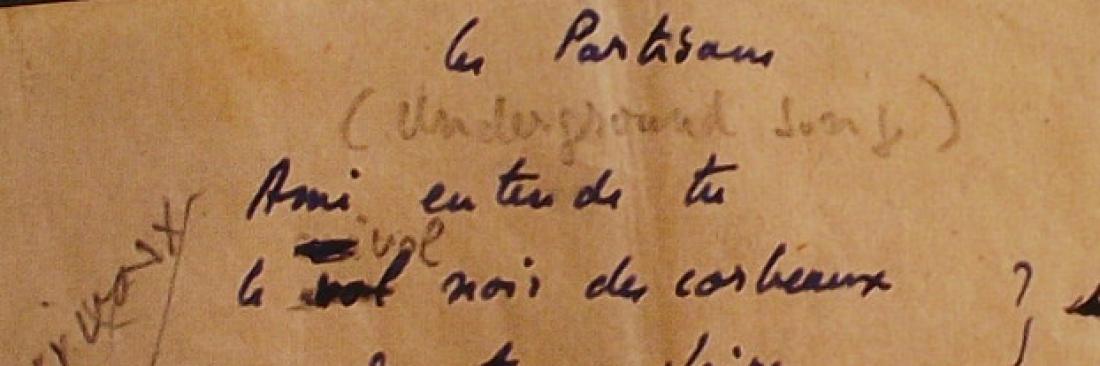 les Partisans
(Underground Song)
Ami entends tu
vol
le vol noir des corbeaux ?